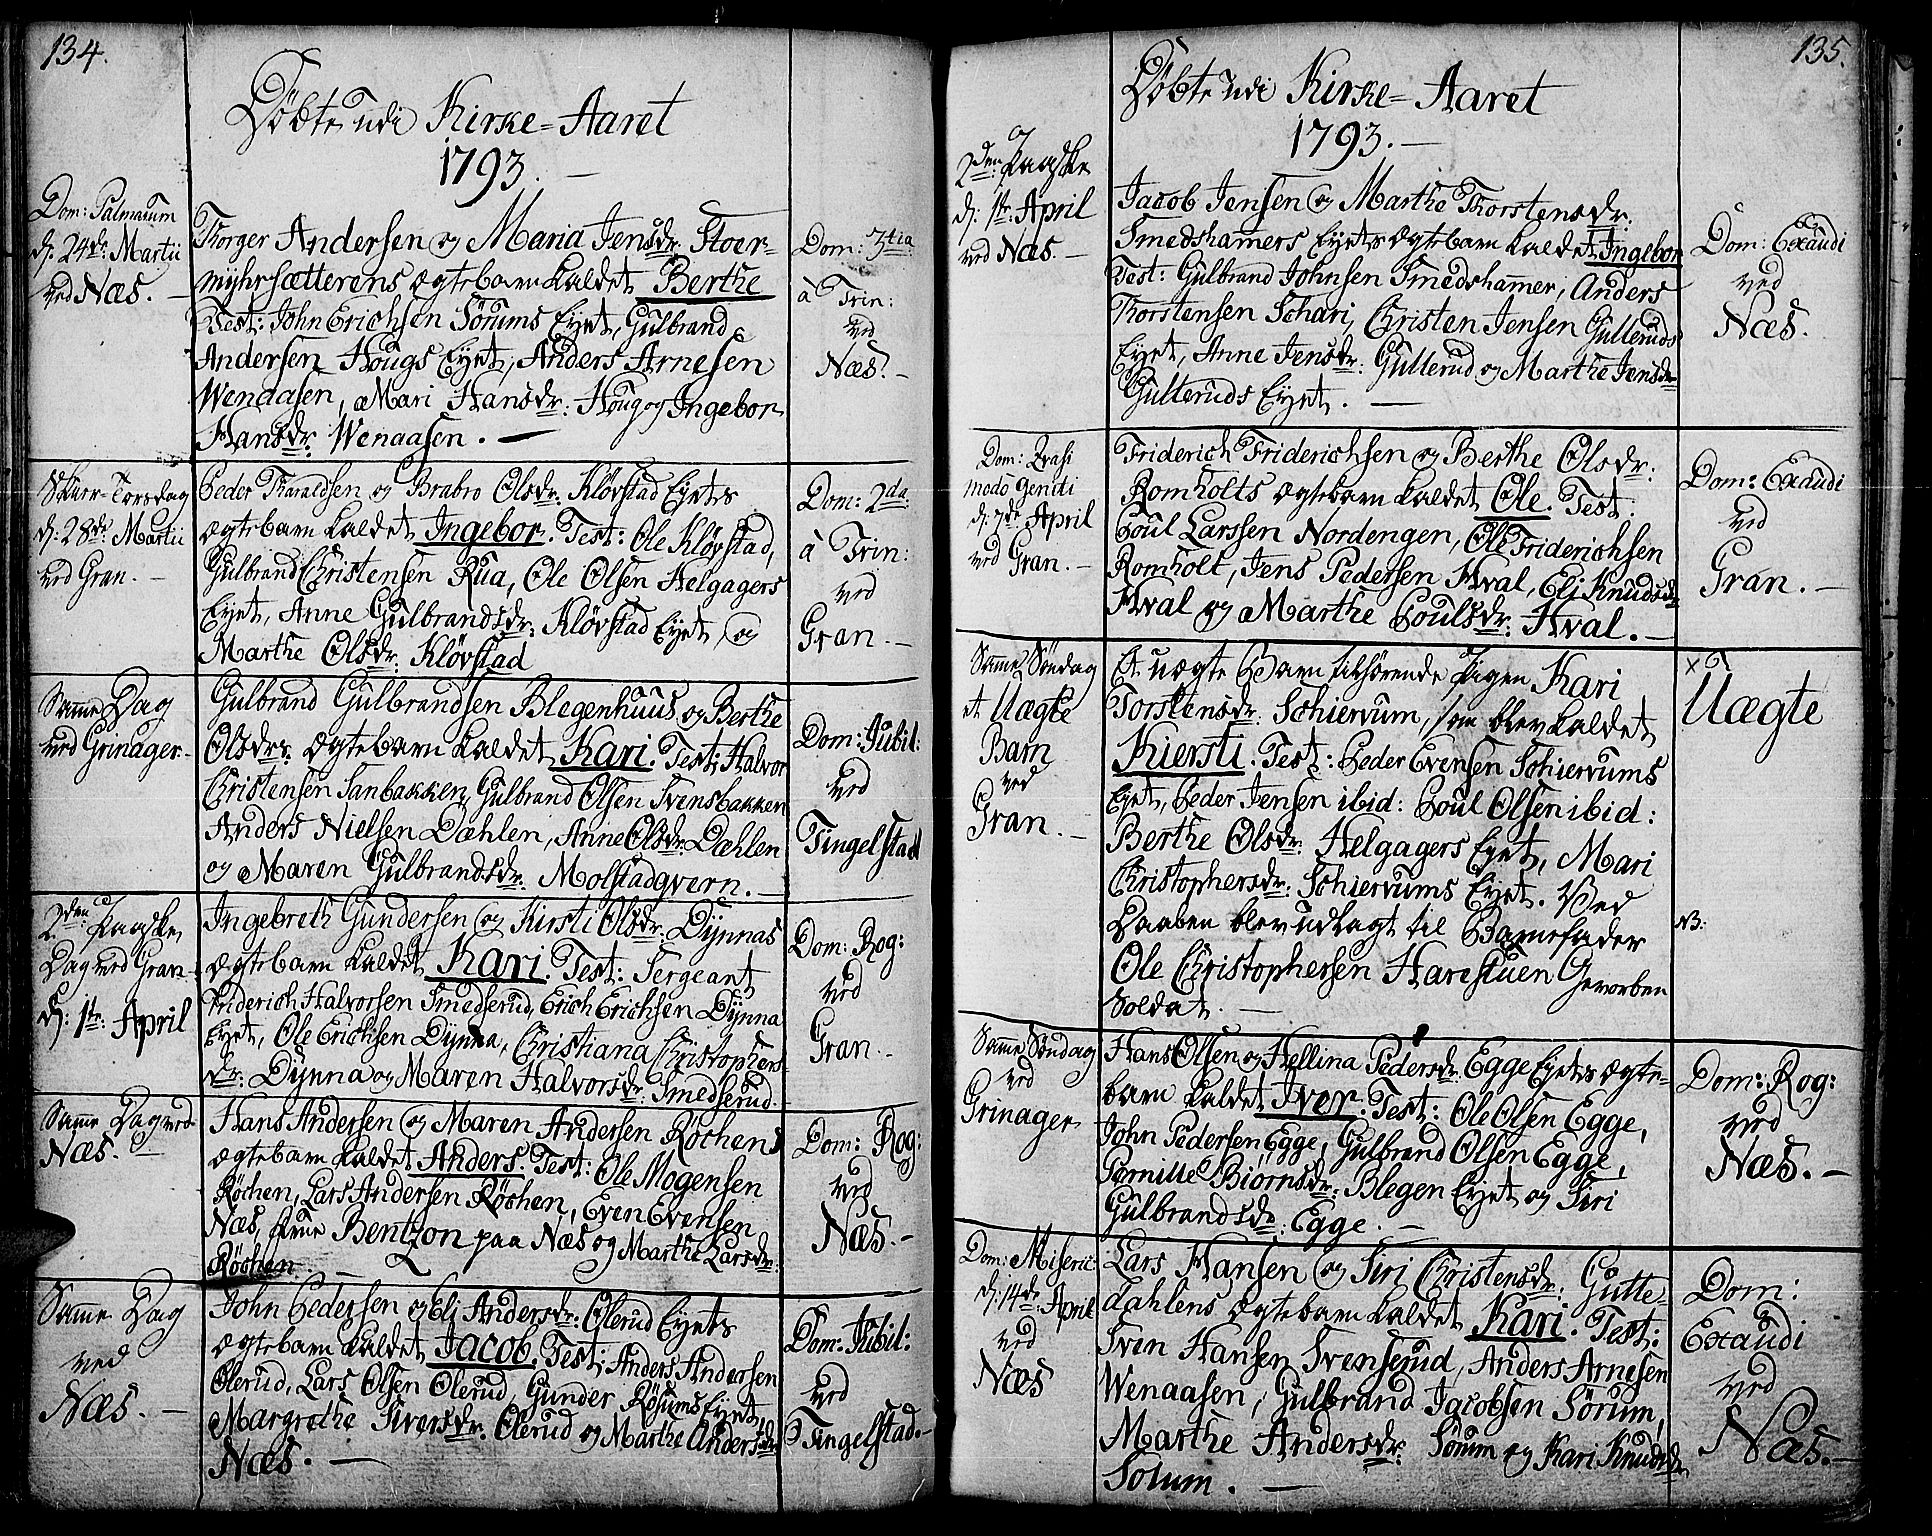 134.
Døbte udi Kirke=Aaret
1793. —
Dom: Palmarum
d: 24de Martii
ved Næs. —
Thorger Andersen og Maria Jensdr: Stoer-
myhrsætterens ægtebarn kaldet Berthe
Test: John Erichsen Sørums Eyet, Gulbrand
Andersen Hougs Eyet, Anders Arnesen
Wenaasen, Mari Hansdr: Houg og Ingebor
Hansdr: Wenaasen. —
Dom: 3tia
à Trin:
ved
Næs. —
Skier-Torsdag
d: 28de Martii
ved Gran. —
Peder Tharaldsen og Brabro Olsdr: Kløvstad Eyets
ægtebarn kaldet Ingebor. Test: Ole Kløvstad,
Gulbrand Christensen Rua, Ole Olsen Helgagers
Eyet, Anne Gulbrandsdr: Kløvstad Eyet og
Marthe Olsdr: Kløvstad
Dom: 2da
à Trin:
ved
Gran. —
Samme Dag
ved Grinager. —
Gulbrand Gulbrandsen Blegenhuus og Berthe
Olsdr: ægtebarn kaldet Kari. Test: Halvor
Christensen Sanbakken, Gulbrand Olsen Svensbakken
Anders Nielsen Dæhlen, Anne Olsdr: Dæhlen
og Maren Gulbrandsdr: Molstadqvern. —
Dom: Jubil:
ved
Tingelstad
2den Paaske
Dag ved Gran
d: 1te April
Ingebreth Gundersen og Kirsti Olsdr: Dynnas
ægtebarn kaldet Kari. Test: Sergeant
Friderich Halvorsen Smedserud, Erich Erichsen Dynna
Eyet, Ole Erichsen Dynna, Christiana Christophers-
dr: Dynna og Maren Halvorsdr: Smedserud.
Dom: Rog:
ved
Gran. —
Samme Dag ved
Næs. —
Hans Andersen og Maren Andersen Røchens
ægtebarn kaldet Anders. Test: Ole Mogensen
Røchen, Lars Andersen Røchen, Even Evensen
Næs, Frue Bentzon paa Næs og Marthe Larsdr:
Røchen. —
Dom: Rog:
ved
Næs. —
Samme Dag
ved
Næs. —
John Pedersen og Eli Andersdr: Ølerud Eyets
ægtebarn kaldet Jacob. Test: Anders Andersen
Ølerud, Lars Olsen Ølerud, Gunder Røsums Eyet,
Margrethe Siversdr: Ølerud og Marthe Andersdr
Næs. —
Dom: Jubil:
ved
Tingelstad. —
135.
Døbte udi Kirke=Aaret
1793. —
2den Paaske
d: 1te April
ved Næs. —
Jacob Jensen og Marthe Thorstensdr:
Smedshamers Eyets ægtebarn kaldet Ingebor
Test: Gulbrand Johnsen Smedshamer, Anders
Thorstensen Schari, Christen Jensen Gulleruds
Eyet, Anne Jensdr: Gullerud og Marthe Jensdr
Gulleruds Eyet. —
Dom: Exaudi
ved
Næs.
Dom: Qvasi
modo geniti
d: 7de April
ved Gran. —
Friderich Friderichsen og Berthe Olsdr:
Romholts ægtebarn kaldet Ole. Test:
Poul Larssen Nordengen, Ole Friderichsen
Romholt, Jens Pedersen Hval, Eli Knudsdr
Hval og Marthe Poulsdr: Hval. —
Dom: Exaudi
ved
Gran. —
Samme Søndag
et Uægte
Barn
ved
Gran. —
Et uægte Barn tilhørende Pigen Kari
Torstensdr: Schiervum, som blev kaldet
Kiersti. Test: Peder Evensen Schiervums
Eyet, Peder Jensen ibid: Poul Olsen ibid:
Berthe Olsdr: Helgagers Eyet, Mari
Christophersdr: Schiervums Eyet. Ved
Daaben blev udlagt til Barnefader
Ole Christophersen Harestuen Gevorben
Soldat. —
x
Uægte
NB:
Samme Søndag
ved
Grinager
Hans Olsen og Hellina Pedersdr: Egge Eyets ægte-
barn kaldet Iver. Test: Ole Olsen Egge,
John Pedersen Egge, Gulbrand Olsen Egge,
Pernille Biørnsdr: Blegen Eyet og Siri
Gulbrandsdr: Egge. —
Dom: Rog:
ved
Næs. —
Dom: Miseric:
d: 14de April
ved
Næs
Lars Hansen og Siri Christensdr: Gutte-
dahlens ægtebarn kaldet Kari. Test:
Sven Hansen Svenserud, Anders Arnesen
Wenaasen, Gulbrand Jacobsen Sørum,
Marthe Andersdr: Sørum og Kari Knudsdr
Solum. —
Dom:
Exaudi
ved
Næs. —